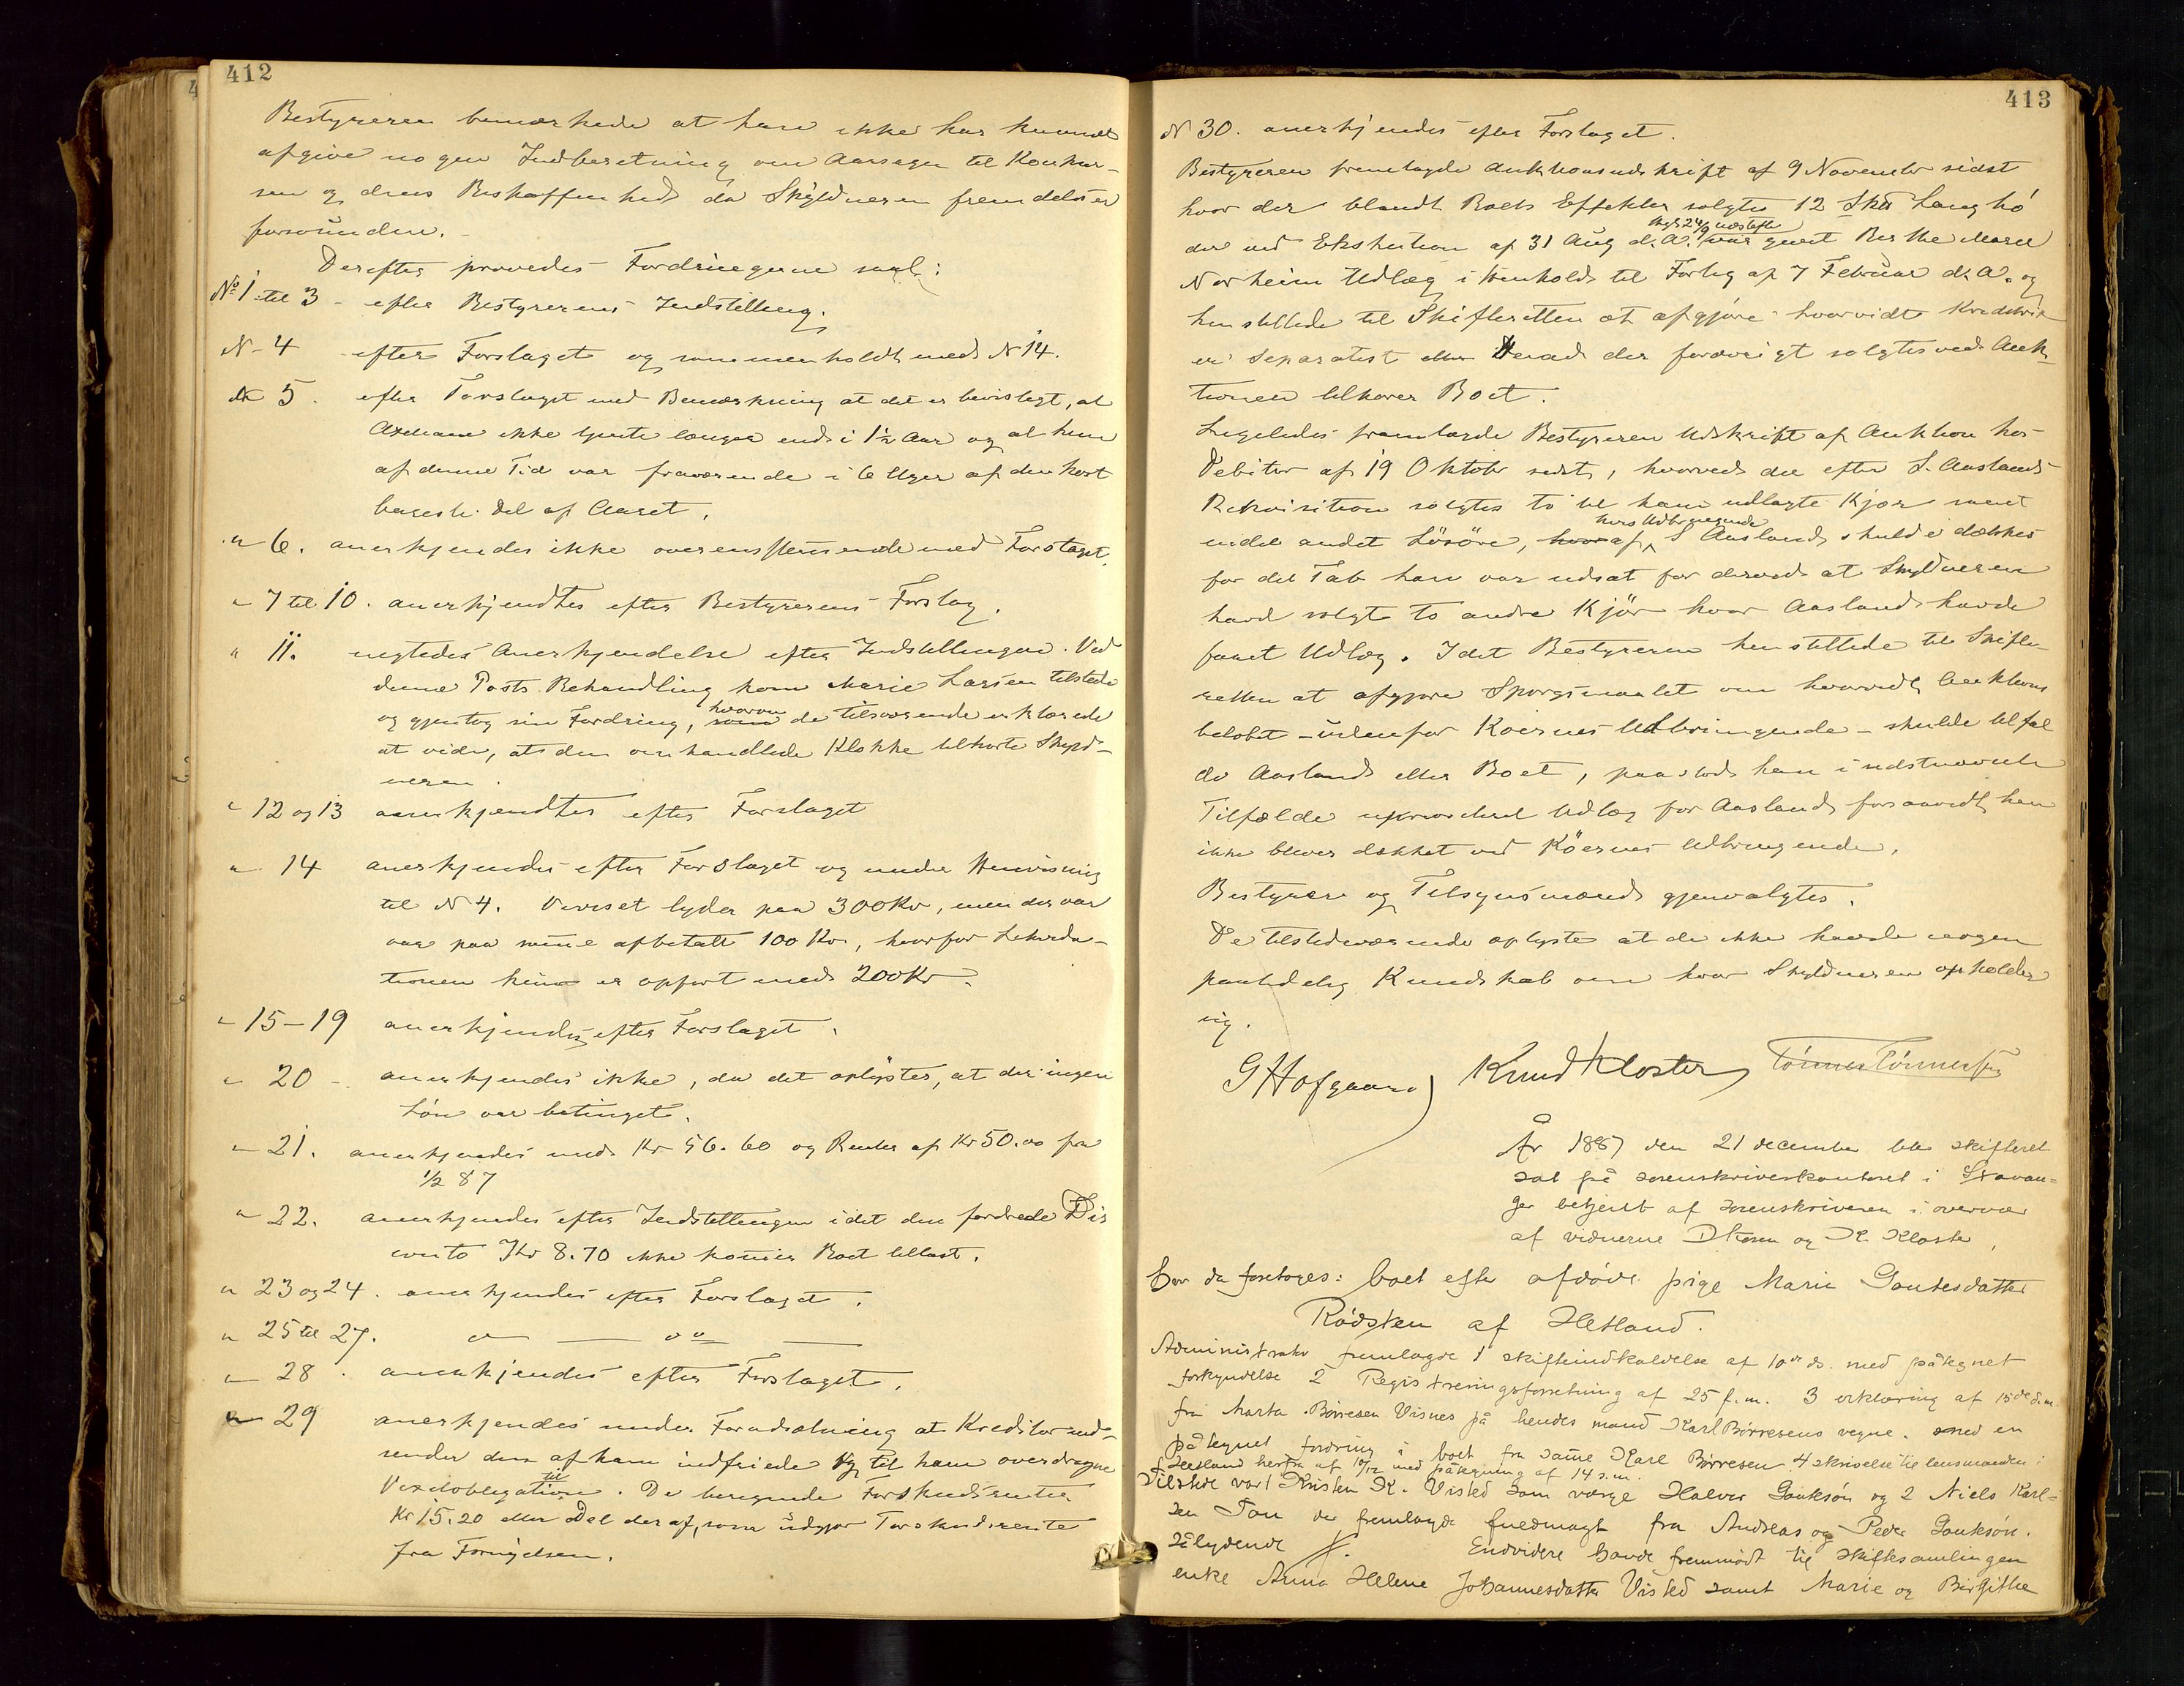 412
Bestyreren bemærkede at han ikke har kunnet
afgive nogen Indberetning om Aarsagen til Konkur-
sen og dens Beskaffenhed da Skyldneren fremdeles er
forsvunden.
Derefter prøvedes Fordringerne saal:
No 1 til 3 - efter Bestyrerens Indstilling.
N - 4 efter Forslaget og sammenholdt med N 14.
" 5. efter Forslaget med Bemærkning at det er bevisligt, at
ikke tjente længer end i 1½ Aar og at hun
af denne Tid var fraværende i 6 Uger af den kost
bareste Del af Aaret.
" 6. anerkjendes ikke overensstemmende med Forslaget.
" 7 til 10. anerkjendtes efter Bestyrerens Forslag.
" 11. negtedes Anerkjendelse efter Indstillingen. Ved
denne Posts Behandling kom Marie Larsen tilstede
og gjentog sin Fordring, hvorom de tilværende erklærede
at vide, at den omhandlede Klokke tilhørte Skyld-
neren.
" 12 og 13 anerkjendtes efter Forslaget
" 14 anerkjendes efter Forslaget og under Henvisning
til N 4. Beviset lyder paa 300 Kr, men der var
var paa samme afbetalt 100 Kr, hvorfor Likvida-
tionen kun er opført med 200 Kr.
" 15 - 19 anerkjendes efter Forslaget.
" 20 - anerkjendes ikke, da det oplystes, at der ingen
Løn var betinget.
" 21. anerkjendes med Kr 56.60 og Renter af Kr 50.00 fra
½ 87
" 22. anerkjendes efter Indstillingen idet den fordrede Dis
conto Kr 8.70 ikke kommer Boet tillast.
" 23 og 24. anerkjendes efter Forslaget.
" 25 til 27. " — " —
" 28. anerkjendes efter Forslaget.
" 29 anerkjendes under Forudsætning at Kreditor ind-
sender den af ham indfriede og til ham overdragne
Vexelobligation. De beregnede Forskudsrenter
Kr 15.20 eller Del deraf, som udgjør Forskudsrente
fra Fornyelsen.
413
N 30. anerkjendes efter Forslaget.
Bestyreren fremlagde Auktionsudskrift af 9 November sidst
hvor der blandt Boets Effekter solgtes 12 Langhø
tgl. 24/9 næstefter
der ved Eksekution af 31 Aug d. A. var gjort Berthe Marie
Norheim Udlæg i Henhold til Forlig af 7 Februar d. A. og
henstillede til Skifteretten at afgjøre hvorvidt Kreditor
er Separatist eller hvad der forøvrigt solgtes ved Auk-
tionen tilhører Boet.
Ligeledes fremlagde Bestyreren Udskrift af Auktion hos
Debitor af 19 Oktober sidst, hvorved der efter S. Aaslands
Rekvisition solgtes to til ham udlagte Kjør samt
hvis Udbringende
endel andet Løsøre, hvoraf S Aasland skulde dækkes
for det Tab han var udsat for derved at Skyldneren
havde solgt to andre Kjør hvor Aasland havde
faaet Udlæg. Idet Bestyreren henstillede til Skifte-
retten at afgjøre Spørgsmaalet om hvorvidt Auktions
beløbet - udenfor Køernes Udbringende - skulde tilfal
de Aasland eller Boet, paastod han i sidstnævnte
Tilfælde uprioriteret Udlæg for Aasland forsaavidt han
ikke bliver dækket ved Køernes Udbringende.
Bestyrer og Tilsynsmænd gjenvalgtes.
De tilstedeværende oplyste at de ikke havde nogen
paalidelig Kundskab om hvor Skyldneren opholder
sig.
G Hofgaard Knud Kloster Tönnes Tönnessen
År 1887 den 21 december blev skifteret
sat på sorenskriverkontoret i Stavan-
ger betjent af sorenskriveren i overvær
af vidnerne og K. Kloster.
Hvor da foretoges: boet efter afdøde pige Marie Gautesdatter
Rødsten af Hetland.
Administrator fremlagde 1 skifteindkaldelse af 10de ds. med påtegnet
forkyndelse 2 Registreringsforretning af 25 f.m. 3 erklæring af 15de d.m.
fra Marta Børresen Visnes på hendes mand Karl Børresens vegne. med en
påtegnet fordring i boet fra samme Karl Børresen 4 skrivelse til lensmanden i
Hetland herfra af 10/12 med påtegning af 14 s.m.
Tilstede var 1 Kristen K. Visted som værge Halvor Gautsøn og 2 Niels Karl-
sen Tou der fremlagde fuldmagt fra Andreas og Peder Gautsøn.
sålydende #. Endvidere havde fremmødt til skiftesamlingen
enke Anna Helene Johannesdatter Visted samt Marie og Birgithe